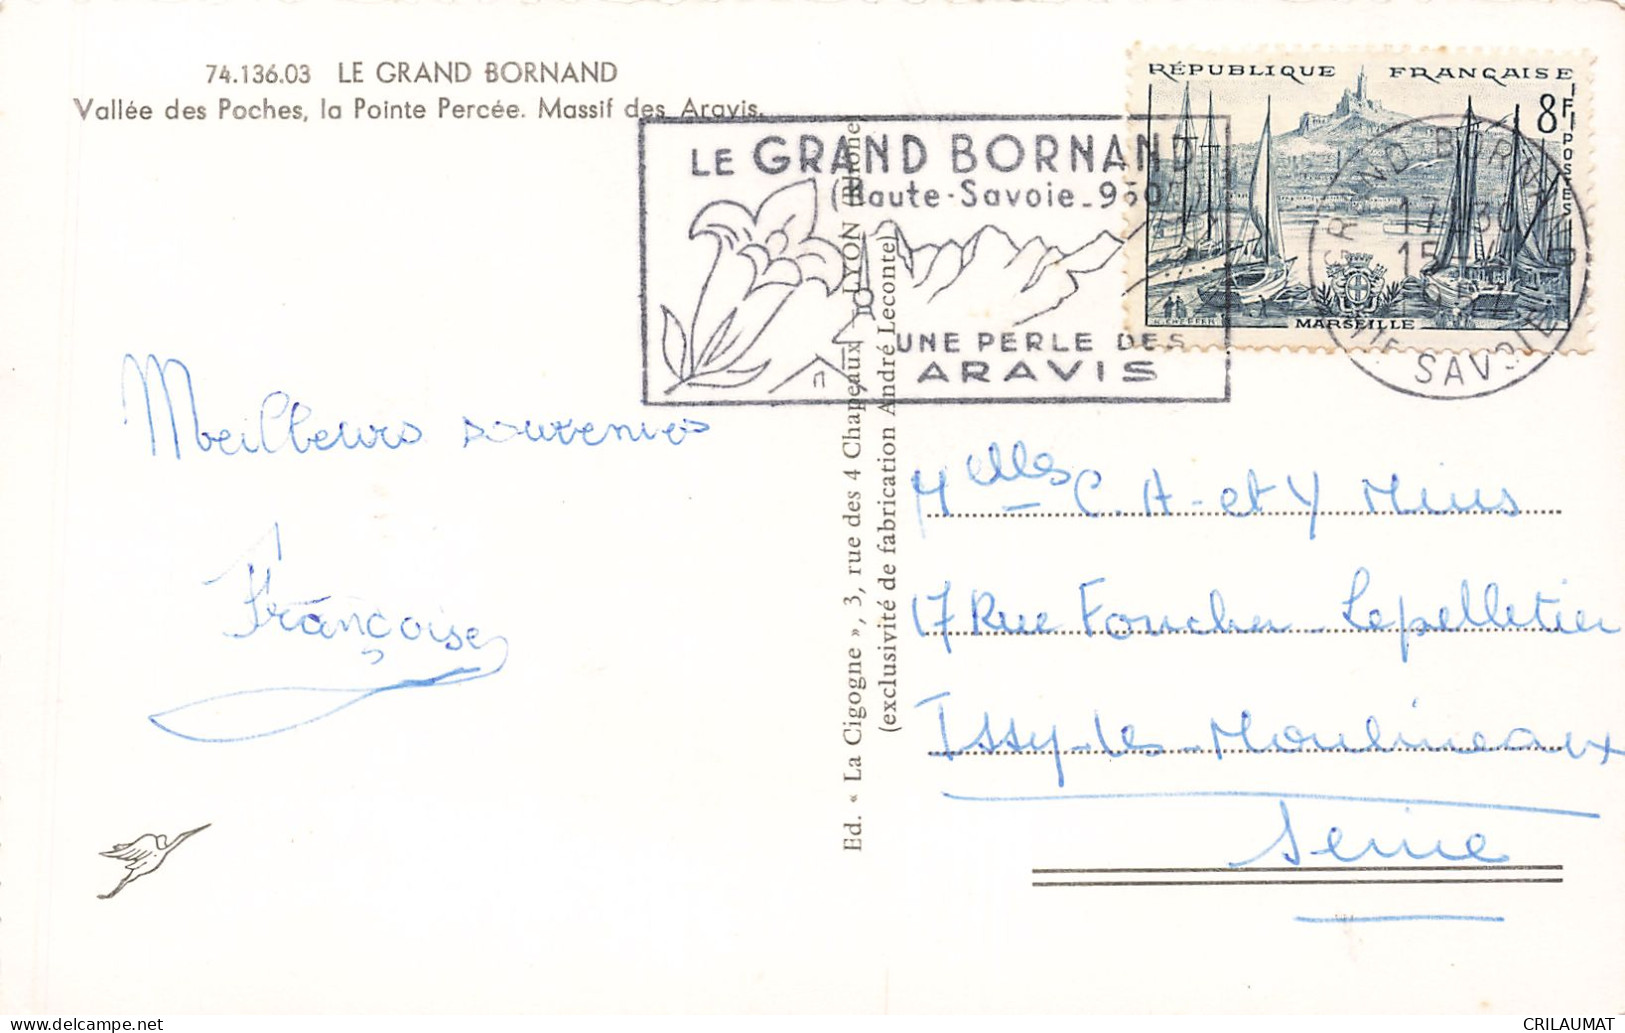 74.136.03 LE GRAND BORNAND
Vallée des Poches, la Pointe Percée. Massif des Aravis.
LE GRAND BORNAND
(Haute-Savoie_950
UNE PERLE DES
ARAVIS
RÉPUBLIQUE FRANÇAISE
8F
POSTES
MARSEILLE
GRAND BORNAND
17 30
15
1957
HTE SAVOIE
Meilleurs souvenirs
Françoise
Ed. « La Cigogne », 3, rue des 4 Chapeaux LYON (Rhône
(exclusivité de fabrication André Leconte)
Melles C. A - et Y Mius
17 Rue Foucher-Lepelletier
Issy-les-Moulineaux
Seine
CRILAUMAT